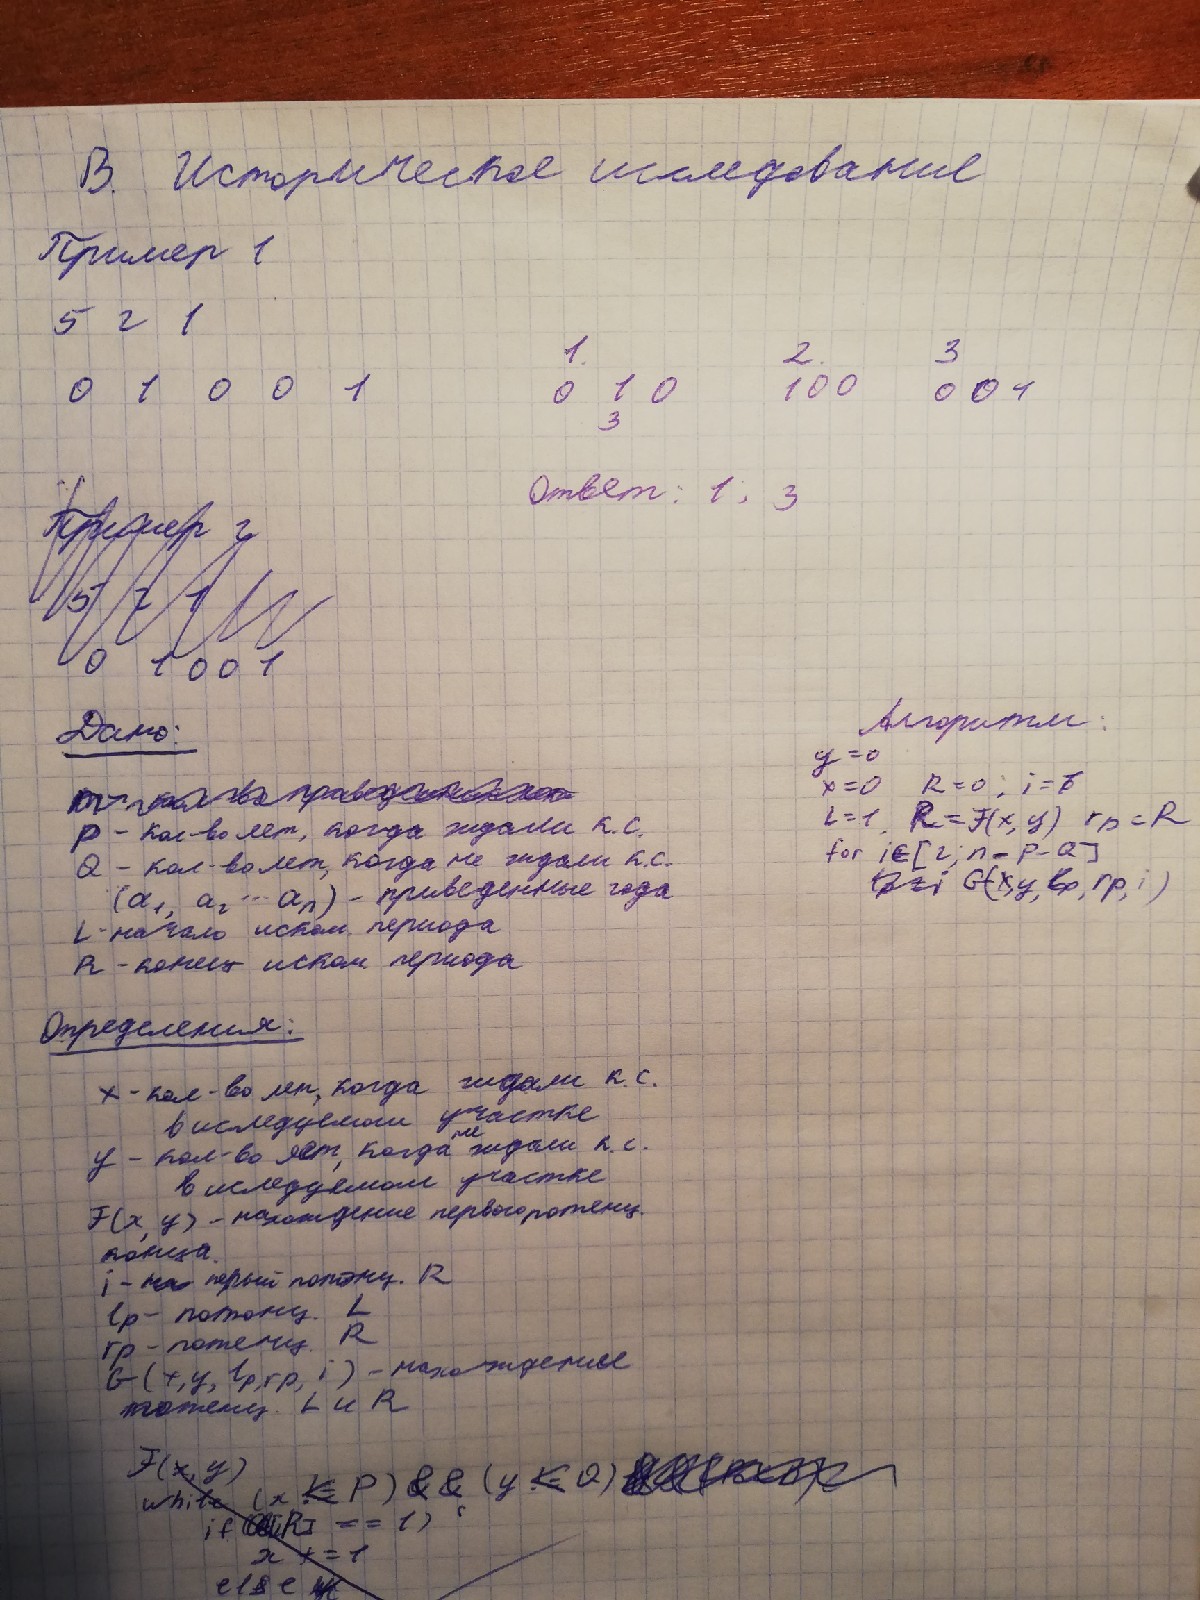 В. Историческое исследование
Пример 1
5 2 1
0 1 0 0 1
1. 2. 3
0 1 0 100 001
3
Ответ: 1, 3
Пример 2
5 2 1
0 1 0 0 1
Дано:
P - кол-во лет, когда ждали к.с.
Q - кол-во лет, когда не ждали к.с.
(a1, a2 ... an) - приведенные года
L - начало иском. периода
R - конец иском периода
Алгоритм:
y=0
x=0 R=0; i=
L=1, R=F(x,y) rp=R
for i∈[2; n-P-Q]
G(x,y,lp,rp,i)
Определения:
x - кол-во лет, когда ждали к.с.
в иследуемом участке
y - кол-во лет, когда не ждали к.с.
в иследуемом участке
F(x,y) - нахождение первого потенц.
конца.
i - перый потенц. R
lp - потенц. L
rp - потенц. R
G(x,y,lp,rp,i) - нахождение
потенц. L и R
F(x,y)
while (x <= P) && (y <= Q)
if [R] == 1)
x += 1
else